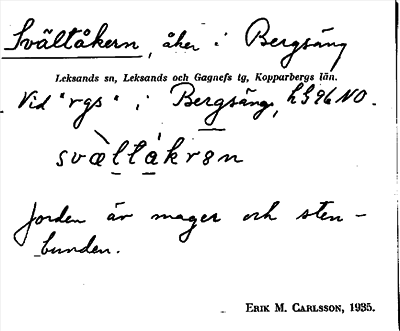 Svältåkern, åker i Bergsäng
Leksands sn, Leksands och Gagnefs tg, Kopparbergs län.
Vid "rgs" i Bergsäng, h 5 96 NO.
svæ̀ltakrən
Jorden är mager och sten-
bunden.
ERIK M. CARLSSON, 1935.